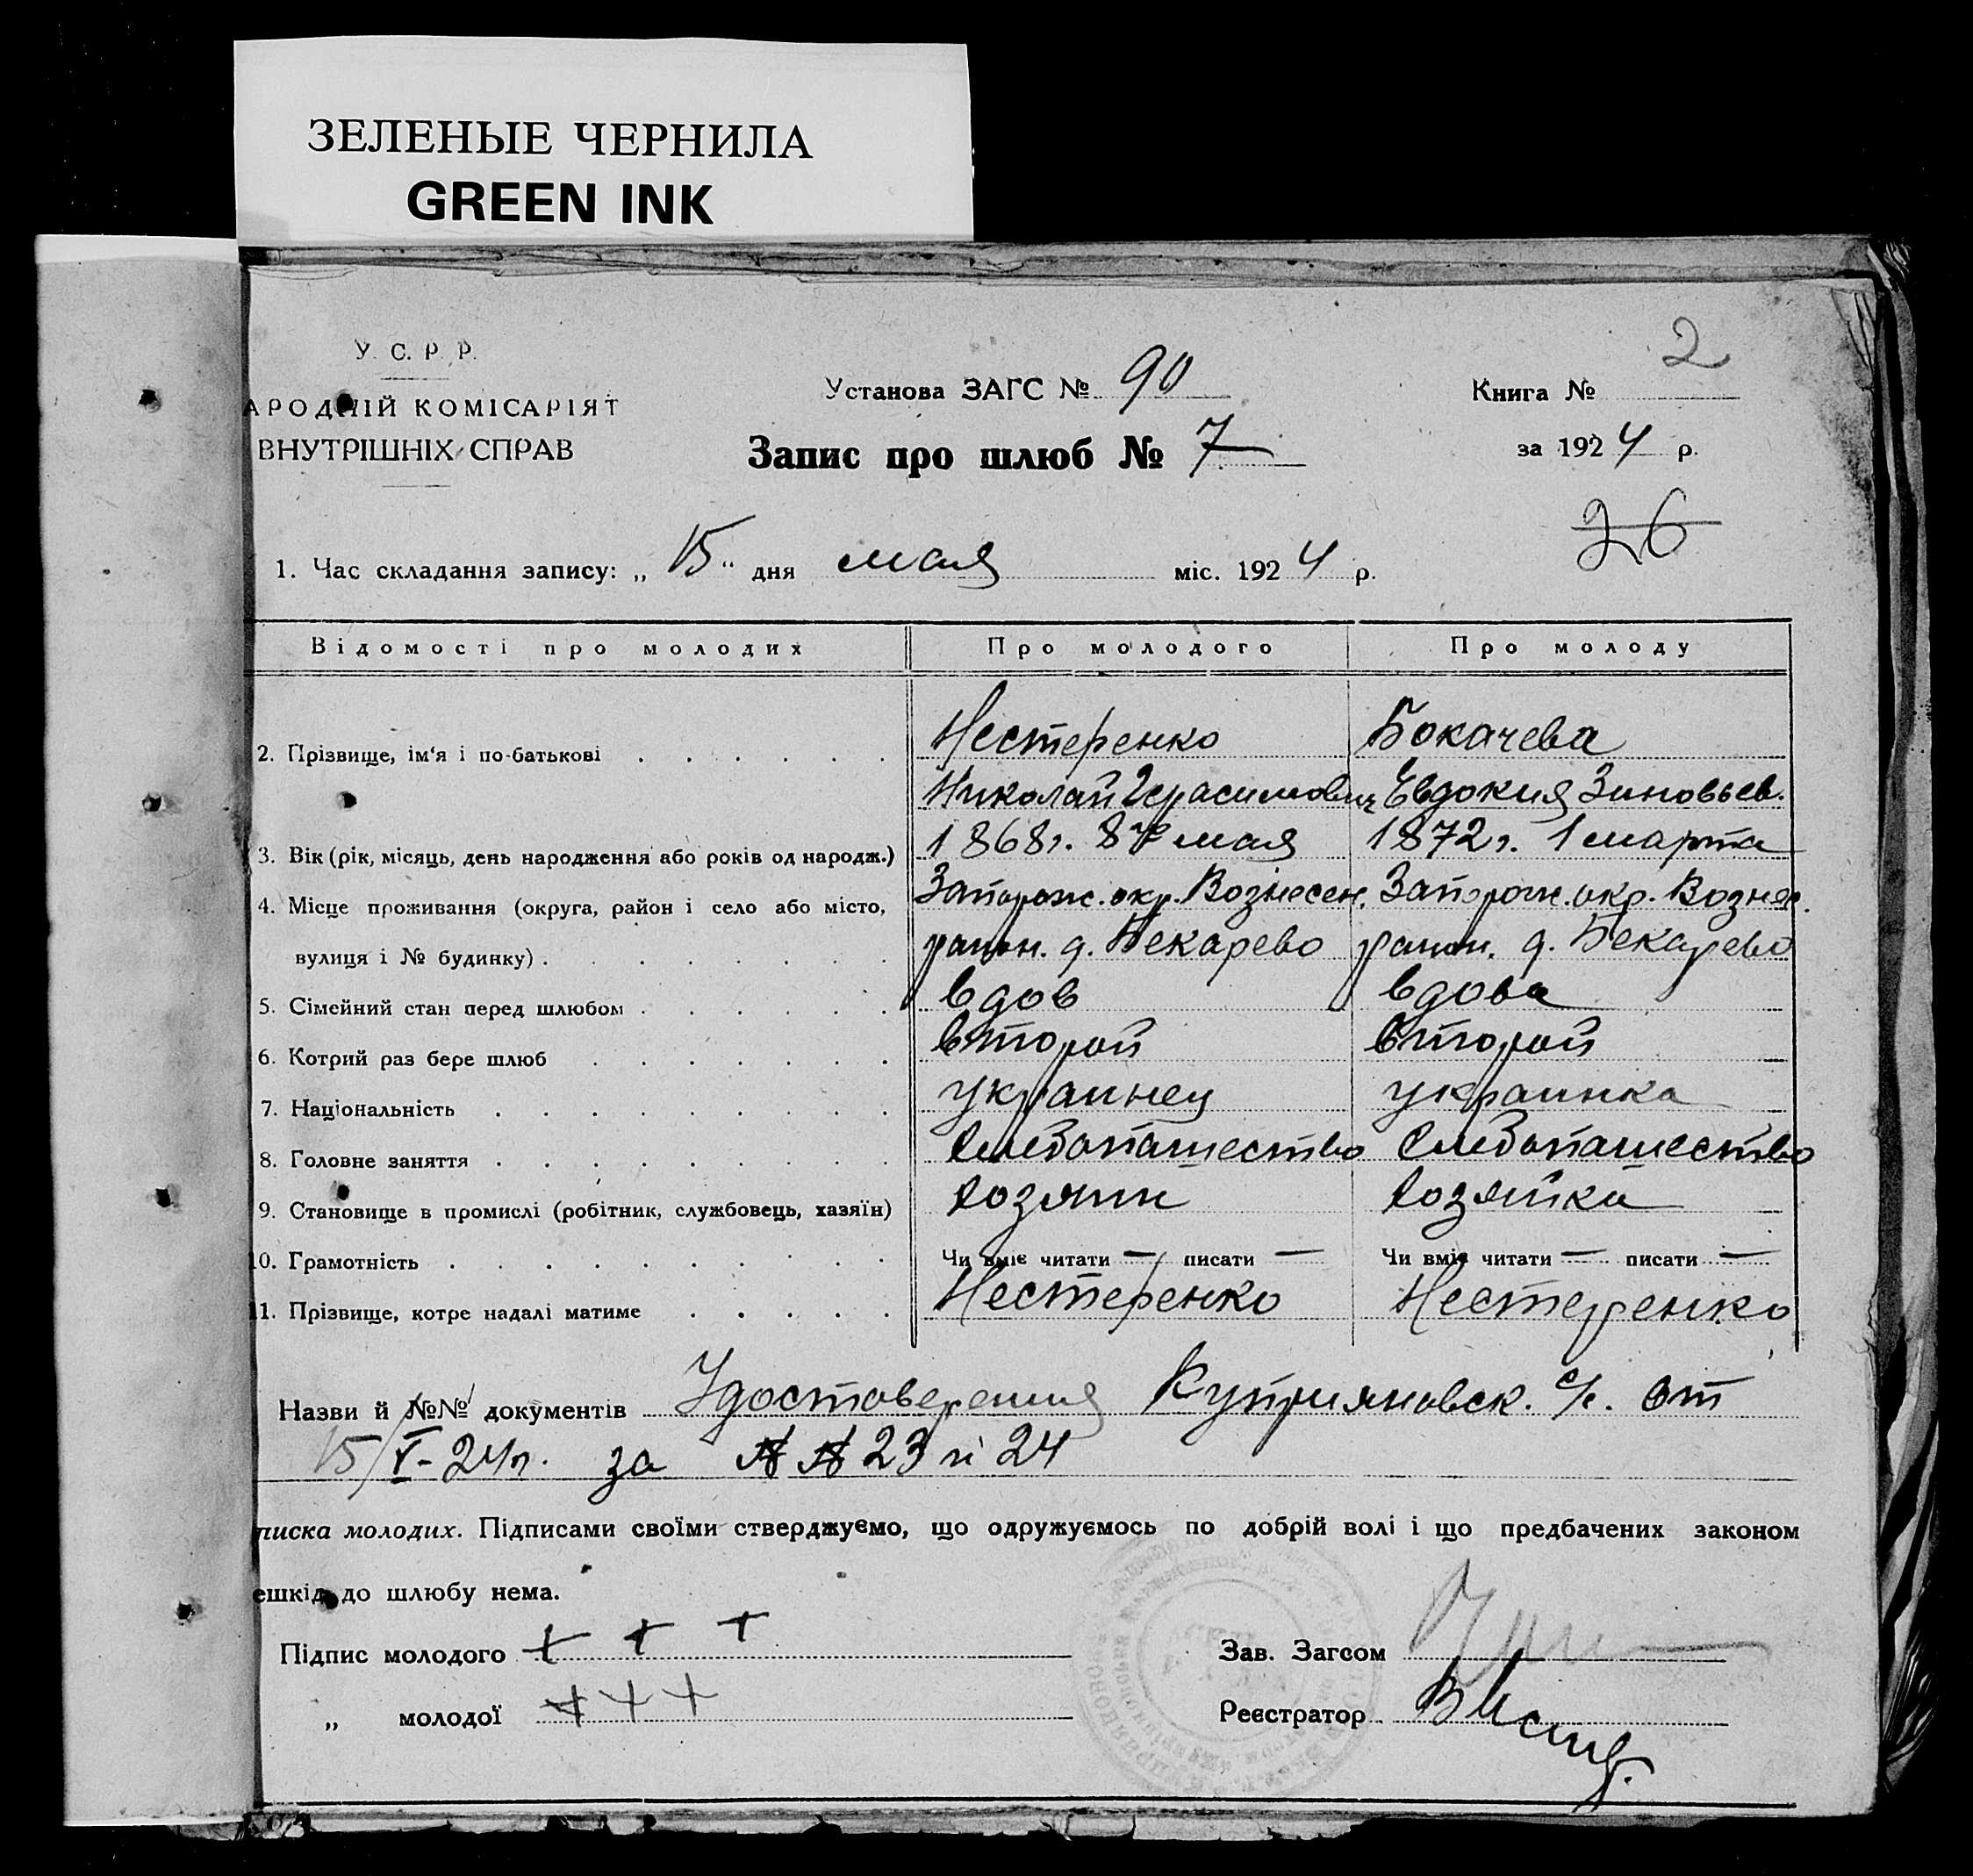 ЗЕЛЕНЫЕ ЧЕРНИЛА
GREEN INK
2
У. С. Р. Р.
АРОДНІЙ КОМІСАРІЯТ
ВНУТРІШНІХ СПРАВ
Установа ЗАГС № 90
Книга №
Запис про шлюб № 7
за 1924 р.
26
1. Час складання запису: „ 15 “ дня мая міс. 1924 р.
Відомості про молодих Про молодого Про молоду
2. Прізвище, ім'я і по-батькові Нестеренко Бокачева
Николай Герасимович Евдокия Зиновьев.
3. Вік (рік, місяць, день народження або років од народж.) 1868г. 8го мая 1872г. 1 марта
4. Місце проживання (округа, район і село або місто, Запорож. окр. Вознесен. Запорож. окр. Вознес.
вулиця і № будинку) район. д. Бекарево район. д. Бекарево
5. Сімейний стан перед шлюбом вдов вдова
6. Котрий раз бере шлюб второй второй
7. Національність украинец украинка
8. Головне заняття хлебопашество хлебопашество
9. Становище в промислі (робітник, службовець, хазяїн) хозяин хозяйка
10. Грамотність Чи вміє читати — писати — Чи вміє читати — писати —
11. Прізвище, котре надалі матиме Нестеренко Нестеренко
Назви й №№ документів Удостоверения Куприяновск. с/с. от
15/V-24г. за №№ 23 и 24
писка молодих. Підписами своїми стверджуємо, що одружуємось по добрій волі і що предбачених законом
ешкід до шлюбу нема.
Підпис молодого + + +
Зав. Загсом
„ молодої + + +
Реєстратор